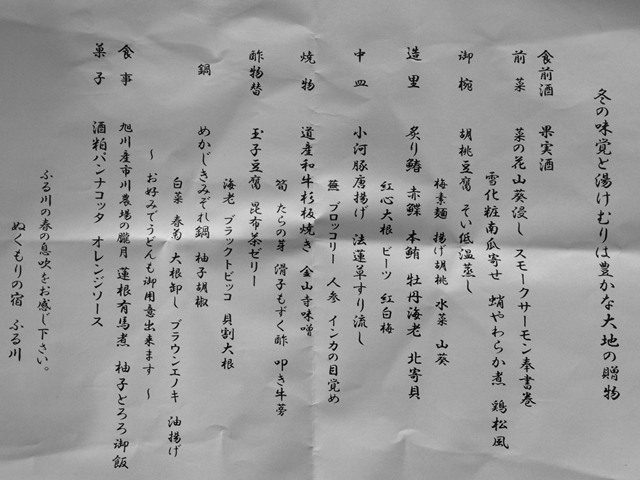 冬の味覚と湯けむりは豊かな大地の贈物
食前酒 果実酒
前菜 菜の花山葵浸し スモークサーモン奉書巻
雪化粧南瓜寄せ 蛸やわらか煮 鶏松風
御椀 胡桃豆腐 そい低温蒸し
梅素麺 揚げ胡桃 水菜 山葵
造里 炙り鰆 赤鰈 本鮪 牡丹海老 北寄貝
紅心大根 ビーツ 紅白梅
中皿 小河豚唐揚げ 法蓮草すり流し
蕪 ブロッコリー 人参 インカの目覚め
焼物 道産和牛杉板焼き 金山寺味噌
筍 たらの芽 滑子もずく酢 叩き牛蒡
酢物替 玉子豆腐 昆布茶ゼリー
海老 ブラックトビッコ 貝割大根
鍋 めかじきみぞれ鍋 柚子胡椒
白菜 春菊 大根卸し ブラウンエノキ 油揚げ
～ お好みでうどんも御用意出来ます ～
食事 旭川産市川農場の朧月 蓮根有馬煮 柚子とろろ御飯
菓子 酒粕パンナコッタ オレンジソース
ふる川の春の息吹をお感じ下さい。
ぬくもりの宿 ふる川